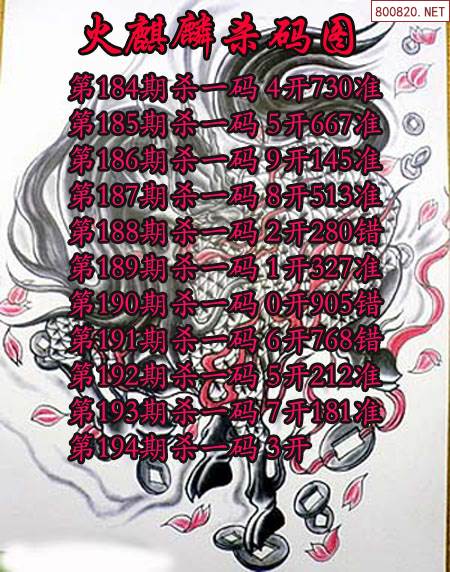 800820.NET
火麒麟杀码图
第184期杀一码 4开730准
第185期杀一码 5开667准
第186期杀一码 9开145准
第187期杀一码 8开513准
第188期杀一码 2开280错
第189期杀一码 1开327准
第190期杀一码 0开905错
第191期杀一码 6开768错
第192期杀一码 5开212准
第193期杀一码 7开181准
第194期杀一码 3开